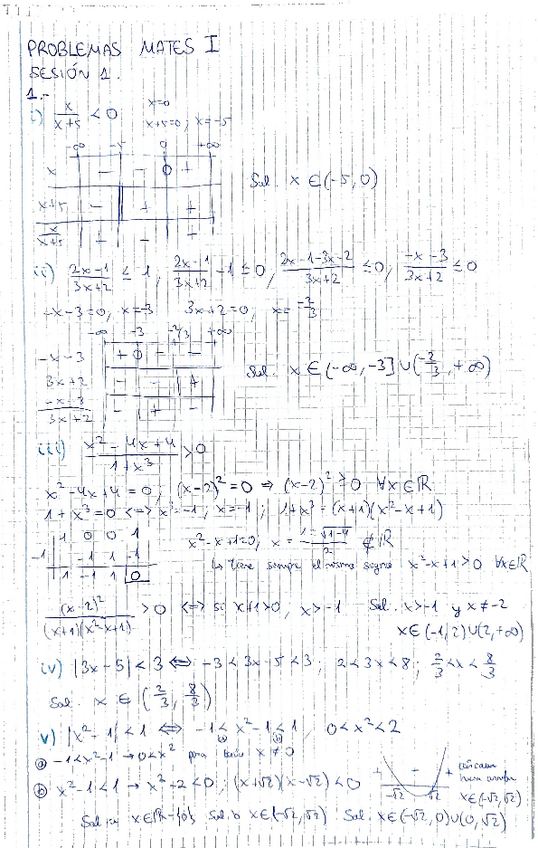 PROBLEMAS MATES I
SESIÓN 1.
1.-
i) x/(x+5) < 0   x=0
x+5=0; x=-5
-∞ -5 0 +∞
x - - 0 +
x+5 - + +
x/(x+5) + - +
Sol. x ∈ (-5, 0)
ii) (2x-1)/(3x+2) ≤ 1, (2x-1)/(3x+2) - 1 ≤ 0, (2x-1-3x-2)/(3x+2) ≤ 0, (-x-3)/(3x+2) ≤ 0
-x-3=0, x=-3   3x+2=0, x=-2/3
-∞ -3 -2/3 +∞
-x-3 + 0 - -
3x+2 - - +
(-x-3)/(3x+2) - + -
Sol. x ∈ (-∞, -3] ∪ (-2/3, +∞)
iii) (x²-4x+4)/(1+x³) > 0
x²-4x+4=0; (x-2)²=0 ⇒ (x-2)² ≥ 0 ∀x∈ℝ
1+x³=0 <=> x³=-1; x=-1; 1+x³=(x+1)(x²-x+1)
1 0 0 1
-1 -1 1 -1
1 -1 1 0
x²-x+1=0, x = (1±√(1-4))/2 ∉ ℝ
↳ tiene siempre el mismo signo x²-x+1>0 ∀x∈ℝ
(x-2)²/((x+1)(x²-x+1)) > 0 <=> si x+1>0, x>-1   Sol. x>-1 y x≠-2
x∈(-1,2)∪(2,+∞)
iv) |3x-5|<3 ⇔ -3<3x-5<3; 2<3x<8; 2/3<x<8/3
Sol. x ∈ (2/3, 8/3)
v) |x²-1|<1 ⇔ -1<x²-1<1, 0<x²<2
ⓐ ⓑ
ⓐ -1<x²-1 → 0<x² para x≠0
ⓑ x²-1<1 → x²-2<0; (x+√2)(x-√2)<0
+ - +
-√2 √2
x∈(-√2,√2)
Sol a x∈ℝ-{0}, Sol. b x∈(-√2,√2)   Sol. x∈(-√2,0)∪(0,√2)